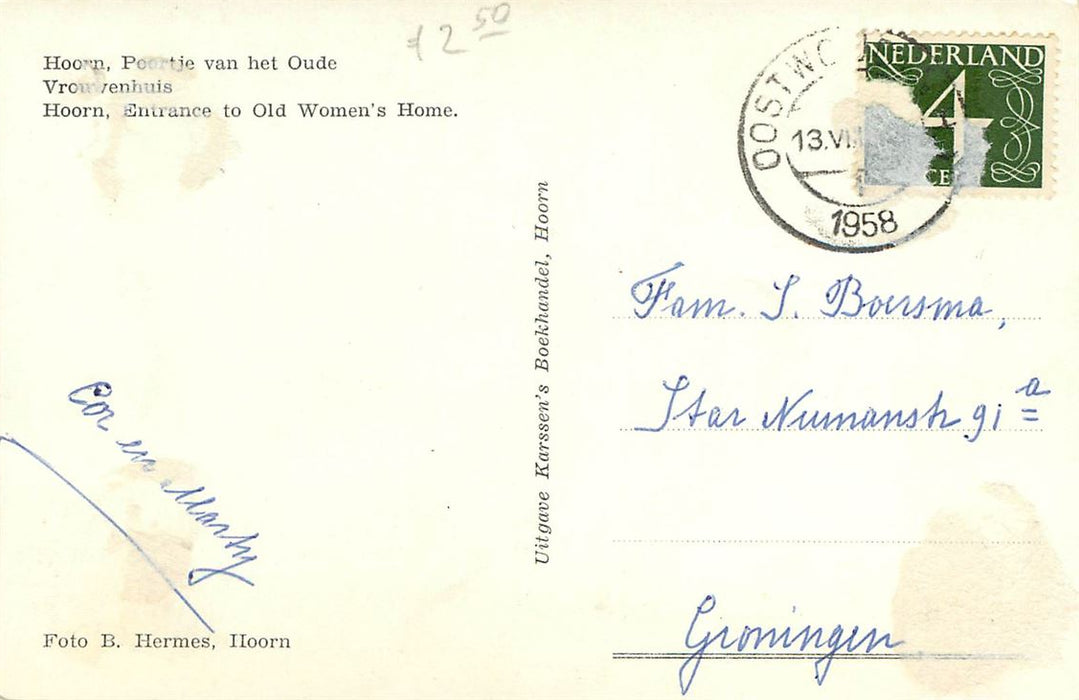 Hoorn, Poortje van het Oude
Vrouwenhuis
Hoorn, Entrance to Old Women's Home.
2 50
NEDERLAND
4
CE
OOSTWO
13.VI
1958
Uitgave Karssen's Boekhandel, Hoorn
Fam. S. Boersma,
Star Numanstr 91 a
Groningen
Cor en Marty
Foto B. Hermes, Hoorn